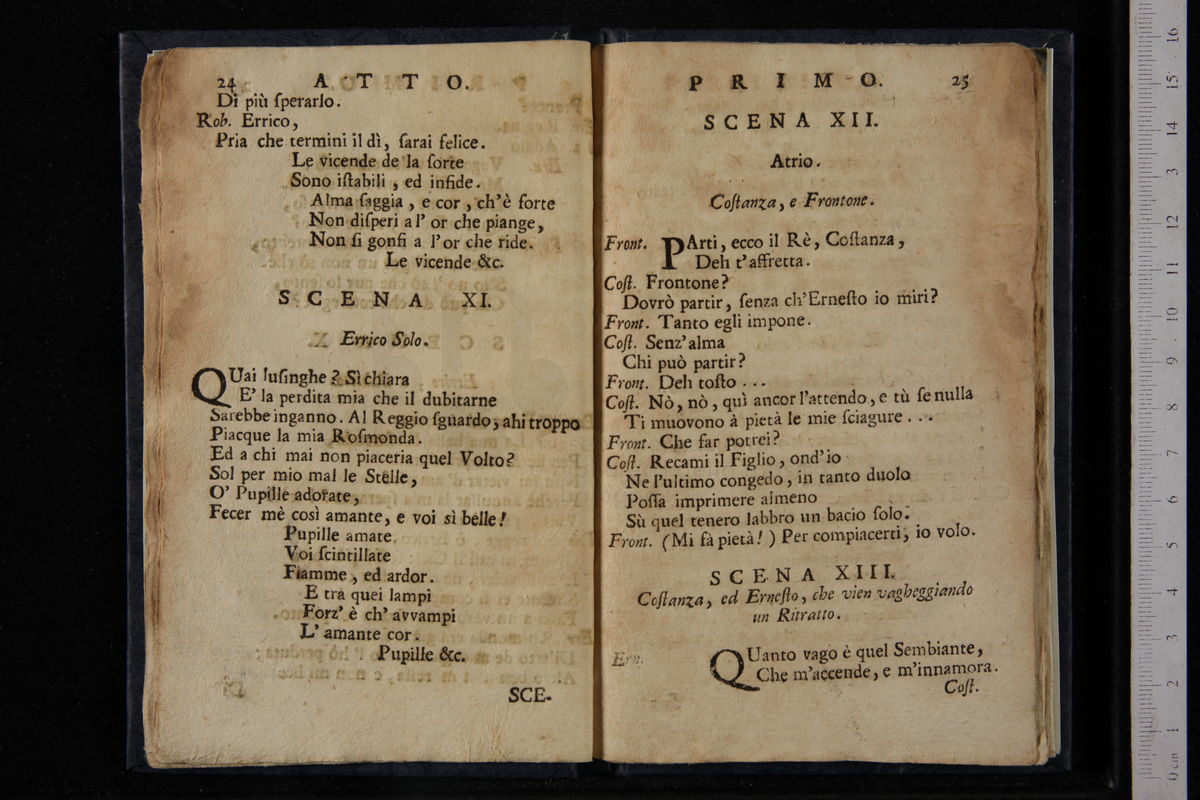 24 ATTO.
Di più ſperarlo.
Rob. Errico,
Pria che termini il dì, ſarai felice.
Le vicende de la ſorte
Sono iſtabili, ed infide.
Alma ſaggia, e cor, ch'è forte
Non diſperi al' or che piange,
Non ſi gonfi a l'or che ride.
Le vicende &c.
SCENA XI.
Errico Solo.
QUai luſinghe? Sì chiara
E' la perdita mia che il dubitarne
Sarebbe inganno. Al Reggio ſguardo, ahi troppo
Piacque la mia Roſmonda.
Ed a chi mai non piaceria quel Volto?
Sol per mio mal le Stelle,
O' Pupille adorate,
Fecer mè così amante, e voi sì belle!
Pupille amate
Voi ſcintillate
Fiamme, ed ardor.
E tra quei lampi
Forz' è ch' avvampi
L' amante cor.
Pupille &c.
SCE-
PRIMO. 25
SCENA XII.
Atrio.
Coſtanza, e Frontone.
Front. PArti, ecco il Rè, Coſtanza,
Deh t'affretta.
Coſt. Frontone?
Dovrò partir, ſenza ch'Erneſto io miri?
Front. Tanto egli impone.
Coſt. Senz'alma
Chi può partir?
Front. Deh toſto . . .
Coſt. Nò, nò, quì ancor l'attendo, e tù ſe nulla
Ti muovono à pietà le mie ſciagure . . .
Front. Che far potrei?
Coſt. Recami il Figlio, ond'io
Ne l'ultimo congedo, in tanto duolo
Poſſa imprimere almeno
Sù quel tenero labbro un bacio ſolo.
Front. (Mi fà pietà!) Per compiacerti, io volo.
SCENA XIII.
Coſtanza, ed Erneſto, che vien vagheggiando
un Ritratto.
Ern. QUanto vago è quel Sembiante,
Che m'accende, e m'innamora.
Coſt.
0 cm 1 2 3 4 5 6 7 8 9 10 11 12 3 14 15 16